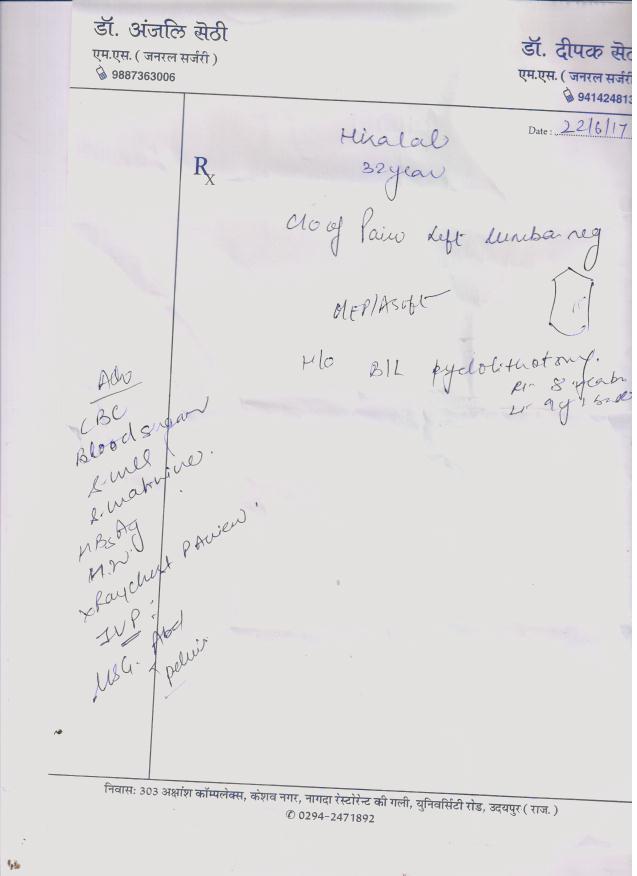 डॉ. अंजलि सेठी
एम.एस. ( जनरल सर्जरी )
9887363006
डॉ. दीपक
एम.एस. ( जनरल सर्जरी
941424813
Date : 22/6/17
Rx
Hiralal
32 year
c/o of Pain Left lumbar reg
O/E P/A Soft
H/o B/L pyelolithotomy.
Rt- 8 year
Lt- 9 y
Adv
CBC
Blood sugar
S. urea
S. creatinine.
HBsAg
H.IV.
X Ray chest PA view.
IVP :
USG. Abd
Pelvis
निवास: 303 अक्षांश कॉम्पलेक्स, केशव नगर, नागदा रेस्टोरेन्ट की गली, युनिवर्सिटी रोड, उदयपुर ( राज. )
0294-2471892